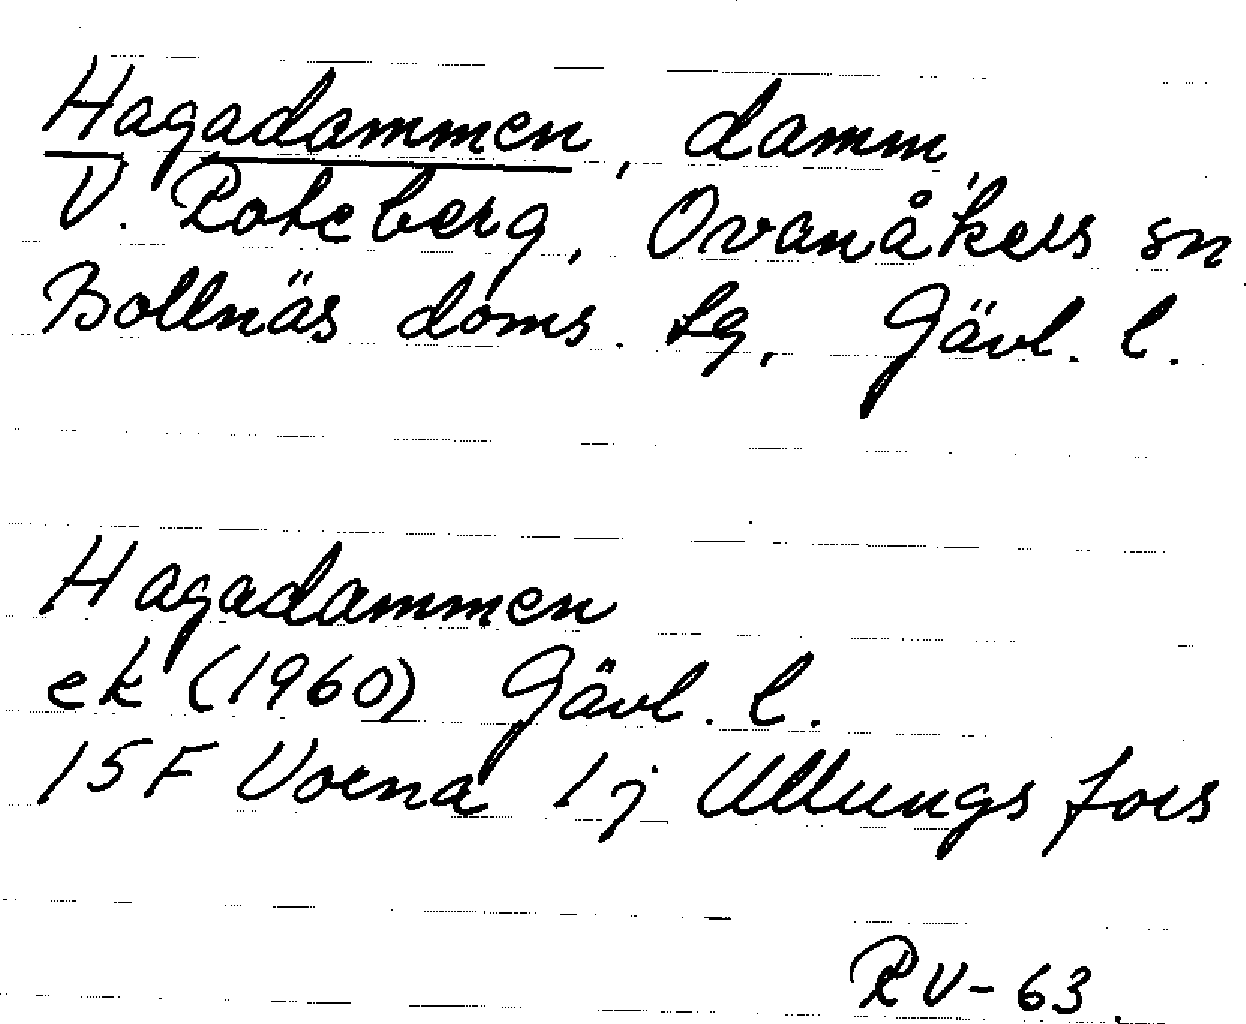 Hagadammen, damm,
V. Roteberg, Ovanåkers sn
Bollnäs doms. lg, Gävl. l.
Hagadammen
ek (1960) Gävl. l.
15F Voxna 1j Ullungsfors
RV-63.